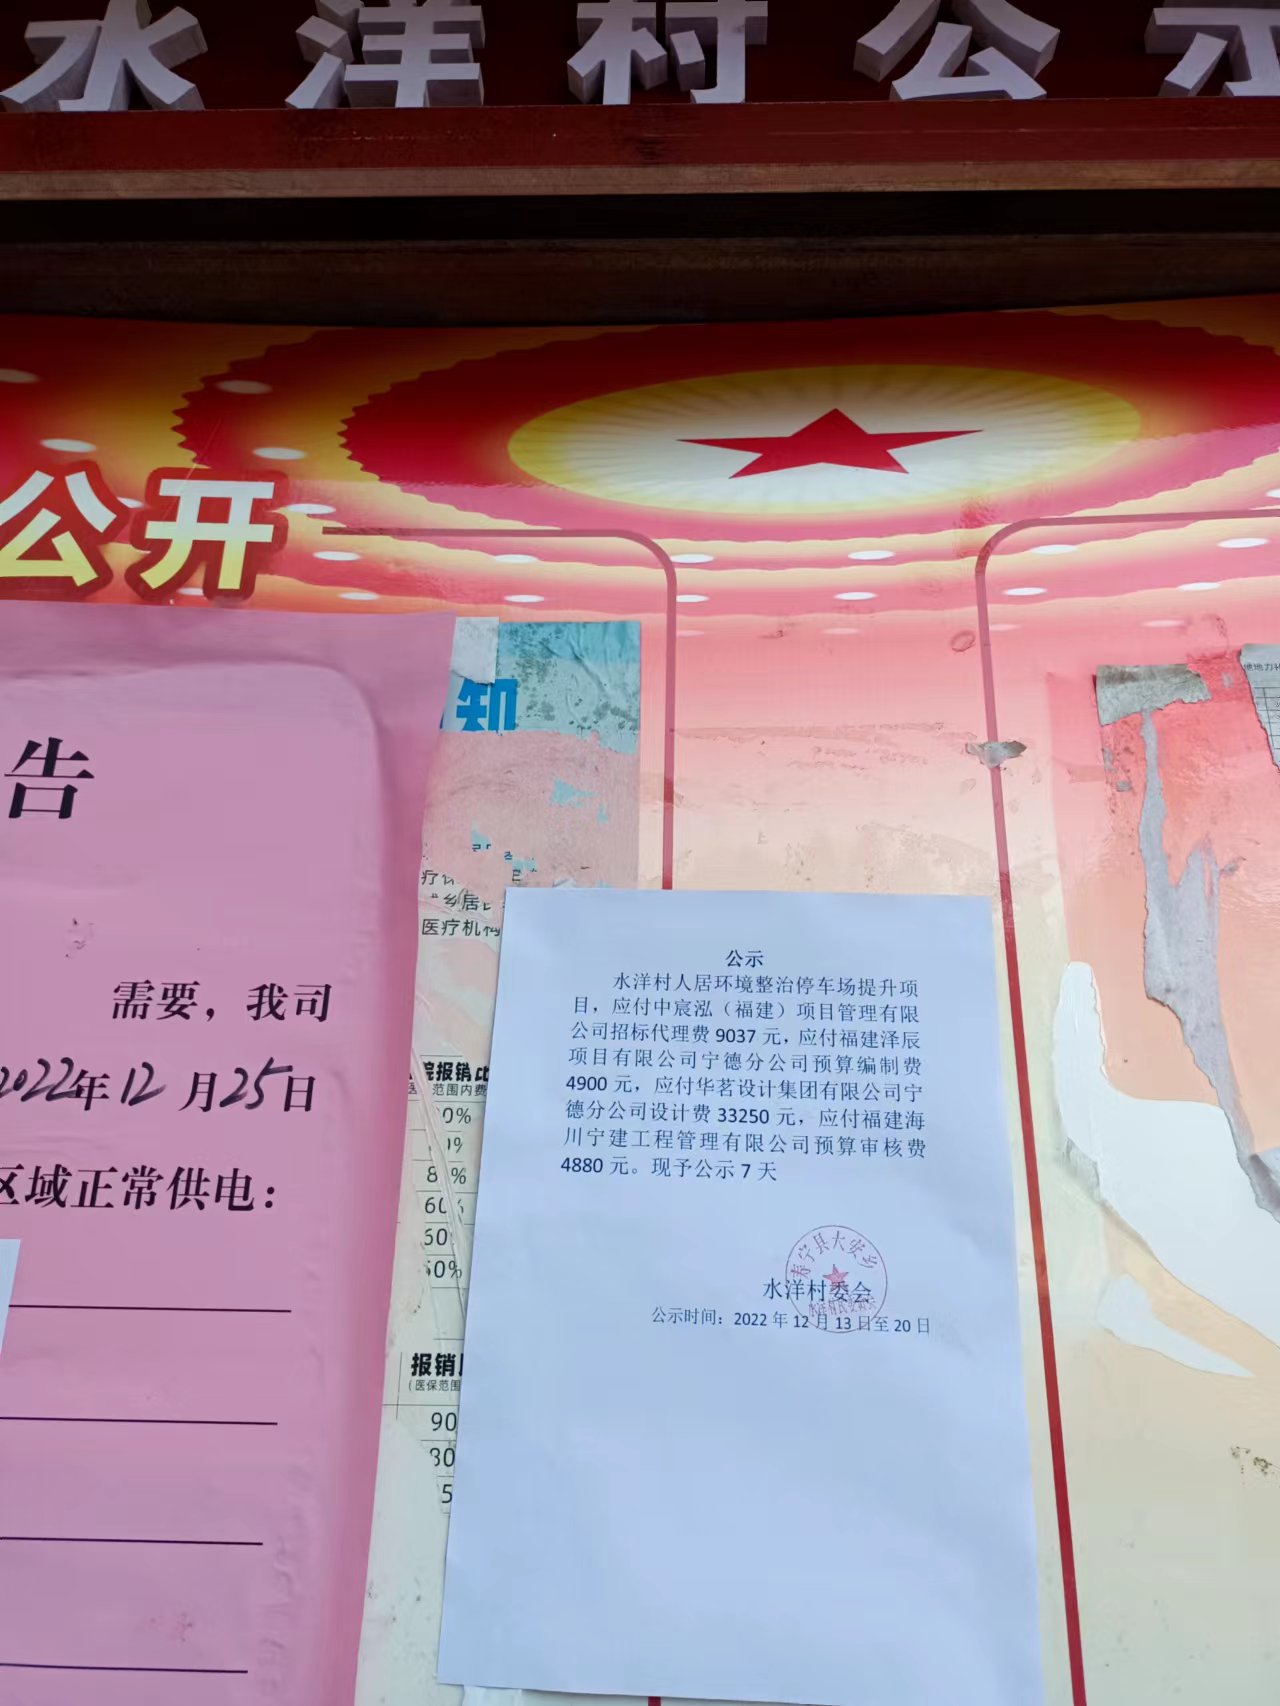 水洋村公示
公开
知
告
需要，我司
2022年12月25日
区域正常供电：
医疗机构
院报销比
范围内费
60%
报销
（医保范围
90
公示
水洋村人居环境整治停车场提升项
目，应付中宸泓（福建）项目管理有限
公司招标代理费 9037 元，应付福建泽辰
项目有限公司宁德分公司预算编制费
4900 元，应付华茗设计集团有限公司宁
德分公司设计费 33250 元，应付福建海
川宁建工程管理有限公司预算审核费
4880 元。现予公示 7 天
寿宁县大安乡
水洋村委会
公示时间：2022 年 12 月 13 日至 20 日